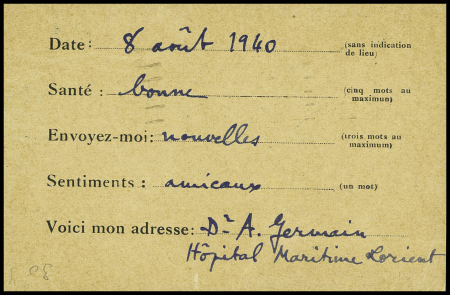 Date: 8 août 1940 (sans indication
de lieu)
Santé : bonne (cinq mots au
maximum)
Envoyez-moi: nouvelles (trois mots au
maximum)
Sentiments : amicaux (un mot)
Voici mon adresse: Dr A. Germain
Hôpital Maritime Lorient